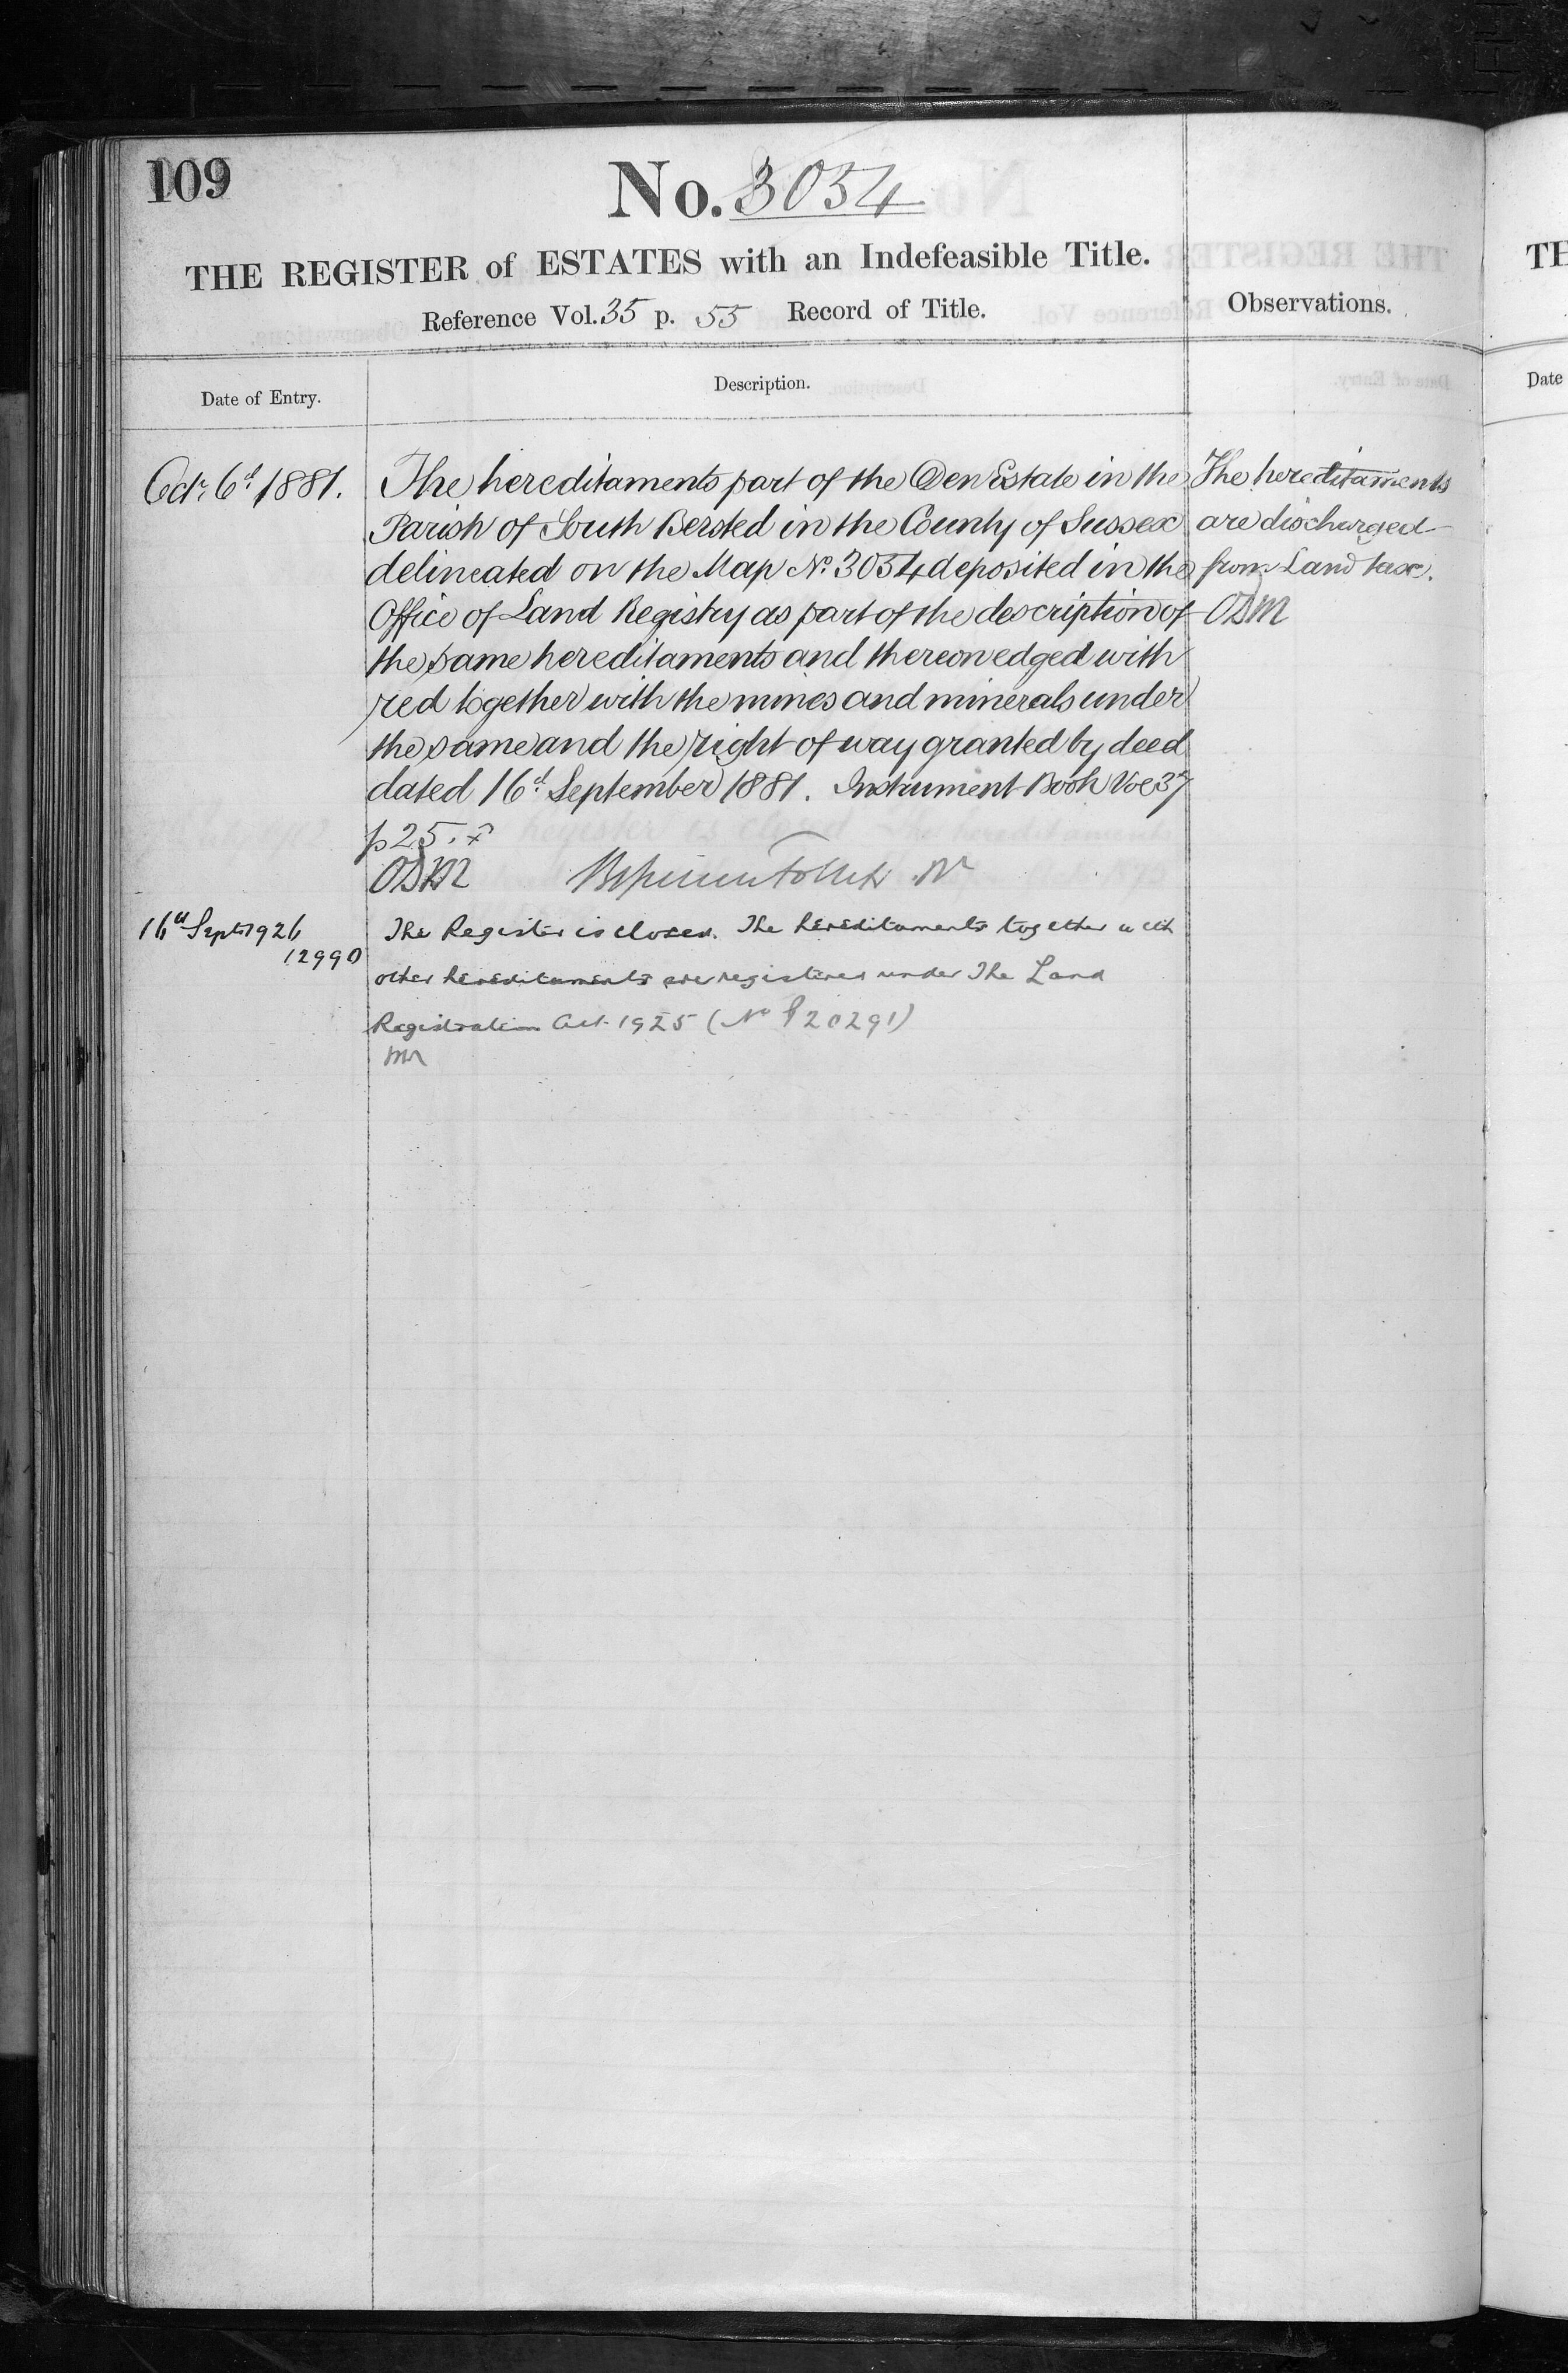 109
No. 3034
THE REGISTER of ESTATES with an Indefeasible Title.
Reference Vol. 35 p. 55 Record of Title.
Observations.
Date of Entry.
Description.
Octr. 6th 1881.
The hereditaments part of the Den Estate in the
Parish of South Bersted in the County of Sussex
delineated on the Map No. 3034 deposited in the
Office of Land Registry as part of the description of
the same hereditaments and thereon edged with
red together with the mines and minerals under
the same and the right of way granted by deed
dated 16th September 1881. Instrument Book Vol 37
p 25.
The hereditaments
are discharged
from Land tax.
16th Sept 1926
12990
The Register is closed. The hereditaments together with
other hereditaments are registered under The Land
Registration Act 1925 (No P20291)
TH
Date